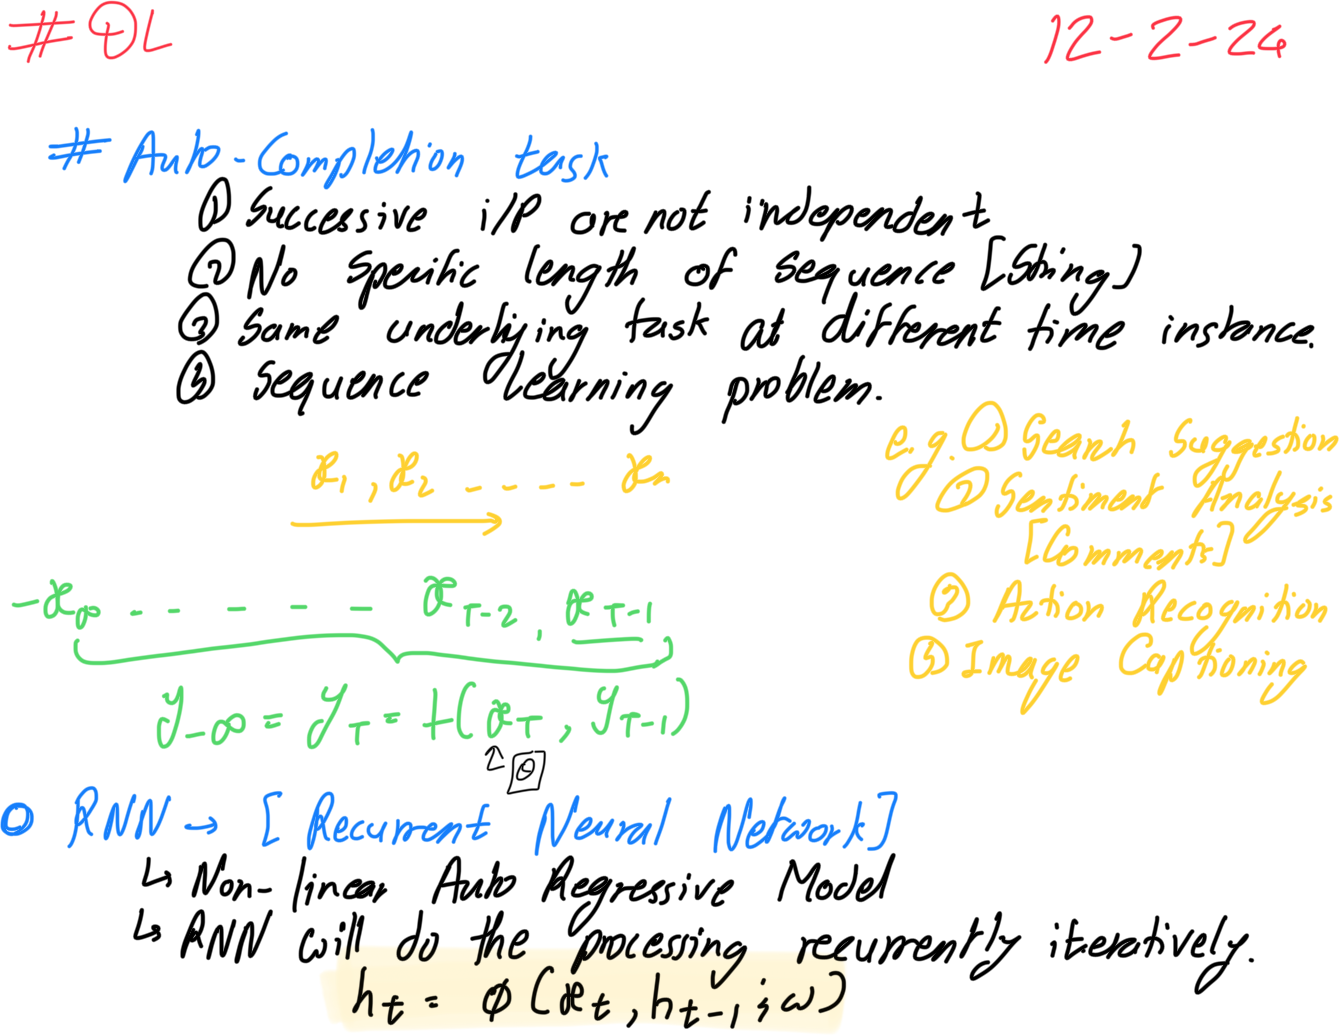 # DL 12-2-24
# Auto-Completion task
① Successive i/P are not independent
② No specific length of sequence [String]
③ Same underlying task at different time instance.
④ Sequence learning problem.
x₁, x₂ ---- xₙ
e.g. ① Search Suggestion
② Sentiment Analysis
[Comments]
③ Action Recognition
④ Image Captioning
-x∞ ----- x_{T-2}, x_{T-1}
y_{-∞} = y_T = f(x_T, y_{T-1})
↑ θ
○ RNN → [Recurrent Neural Network]
↳ Non-linear Auto Regressive Model
↳ RNN will do the processing recurrently iteratively.
h_t = φ(x_t, h_{t-1}; ω)